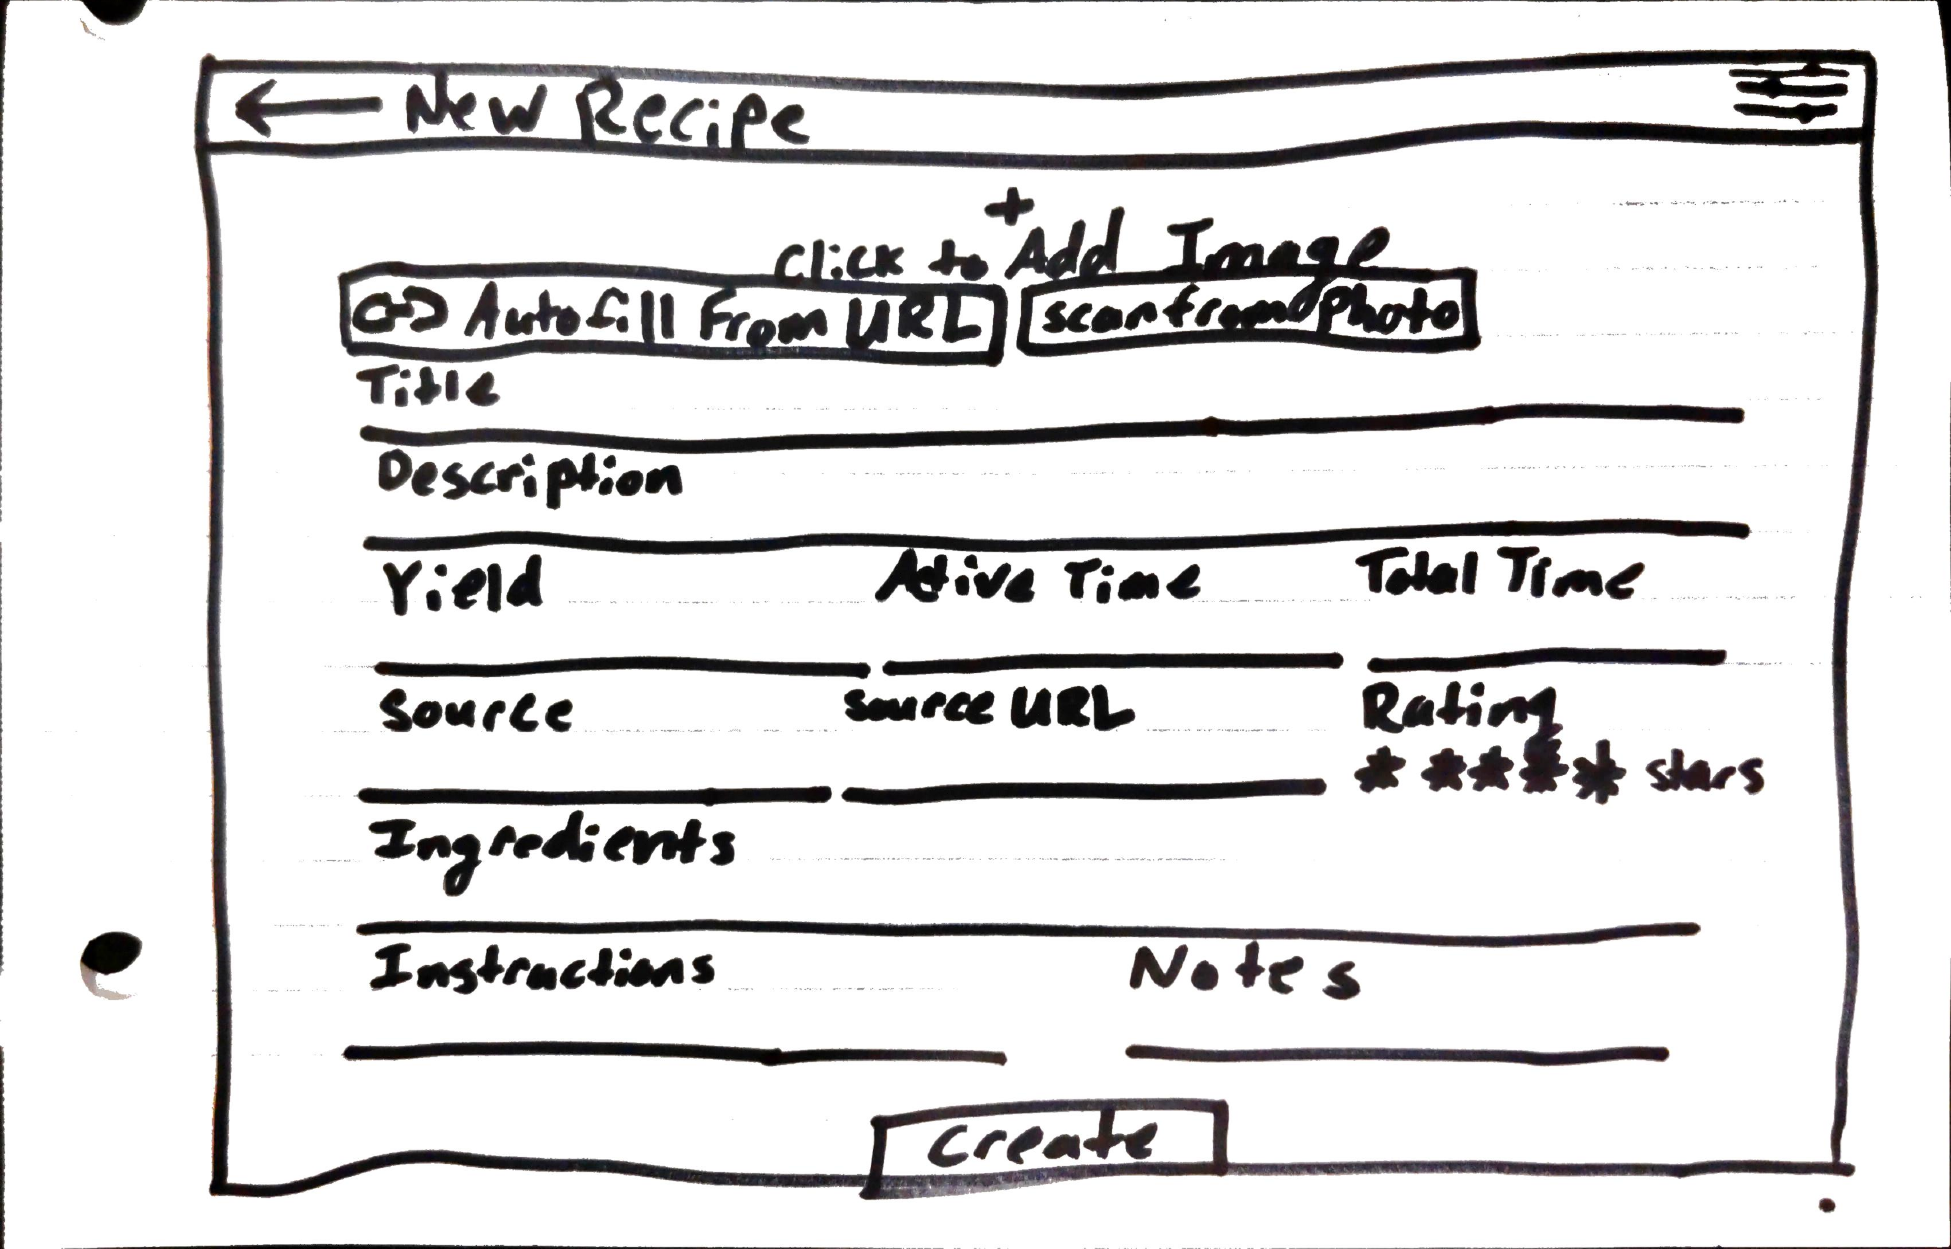 ← New Recipe
+
Click to Add Image
Autofill From URL
scan from photo
Title
Description
Yield Active Time Total Time
Source Source URL Rating
***** stars
Ingredients
Instructions Notes
Create